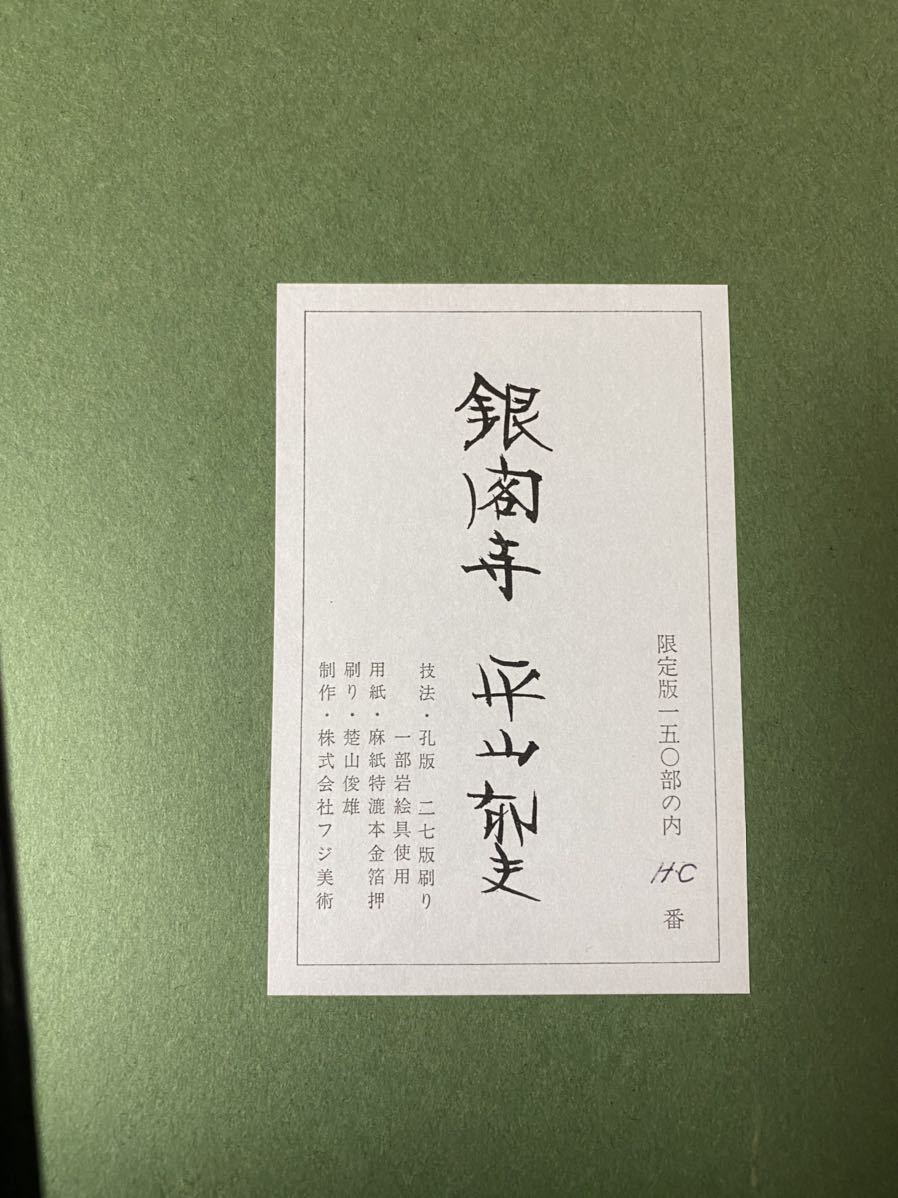 限定版一五〇部の内 H・C 番
銀閣寺 平山郁夫
技法・孔版 二七版刷り
一部岩絵具使用
用紙・麻紙特漉本金箔押
刷り・楚山俊雄
制作・株式会社フジ美術